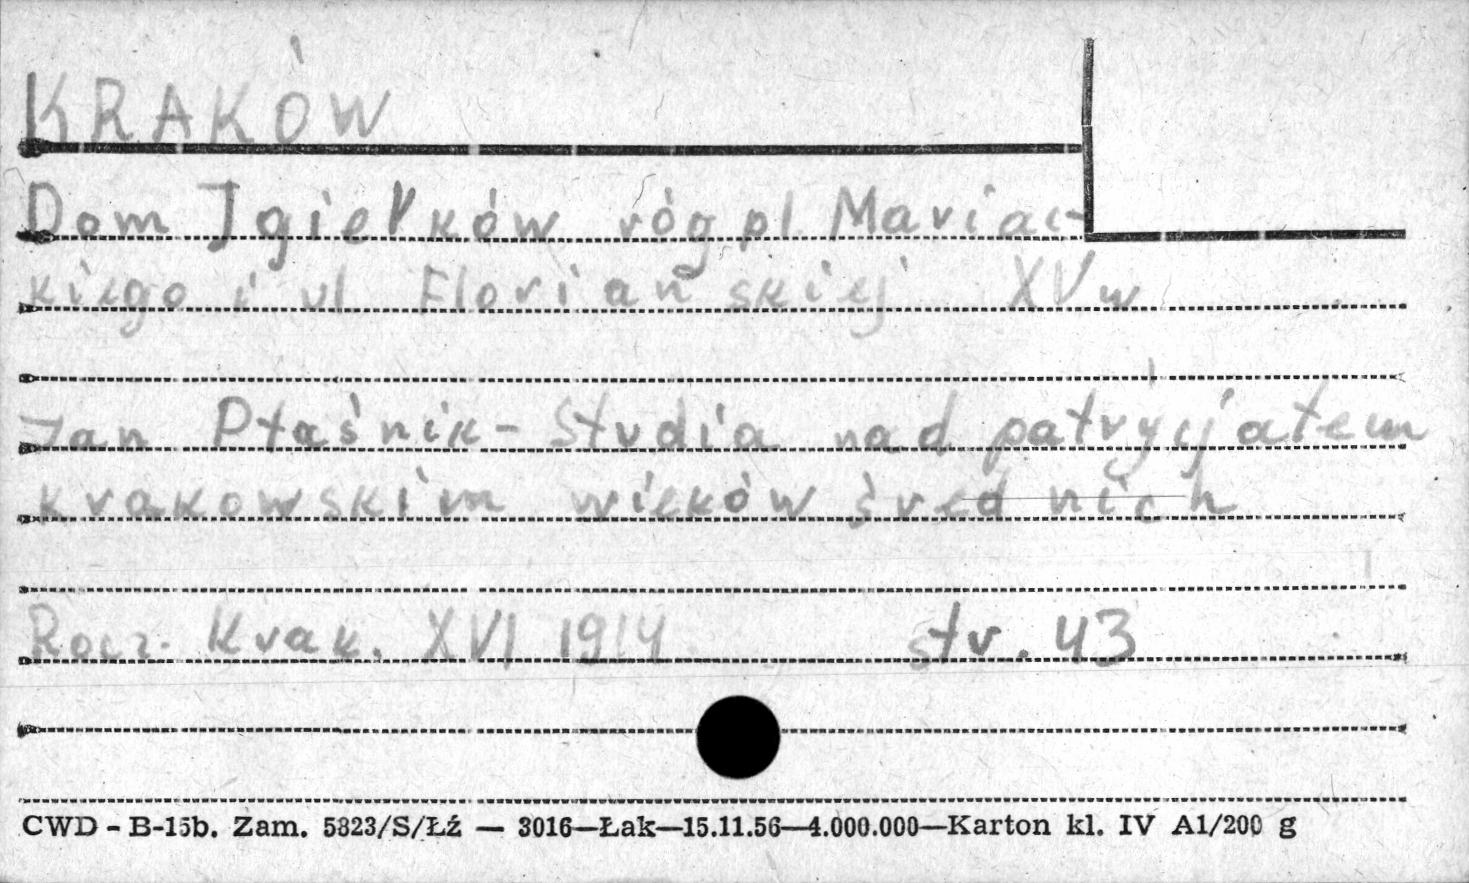 KRAKÓW
Dom Igiełków róg pl. Mariac-
kiego i ul Floriańskiej XV w
Jan Ptaśnik - Studia nad patrycjatem
krakowskim wieków średnich
Rocz. Krak. XVI 1914 str. 43
CWD - B-15b. Zam. 5823/S/Łź — 3016—Łak—15.11.56—4.000.000—Karton kl. IV A1/200 g